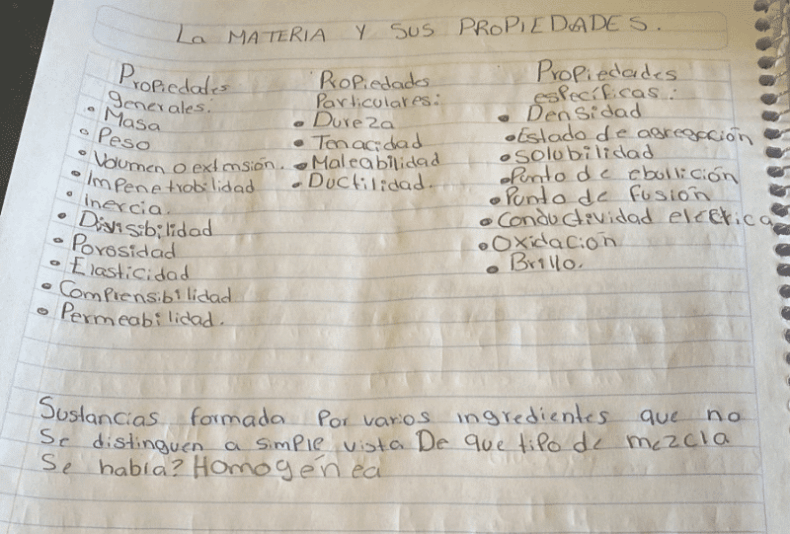 La MATERIA Y SUS PROPIEDADES.
Propiedades
generales:
• Masa
• Peso
• Volumen o extensión.
• Impenetrabilidad
• Inercia.
• Divisibilidad
• Porosidad
• Elasticidad
• Comprensibilidad
• Permeabilidad.
Propiedades
Particulares:
• Dureza
• Tenacidad
• Maleabilidad
• Ductilidad.
Propiedades
específicas:
• Densidad
• Estado de agregación
• Solubilidad
• Punto de ebullición
• Punto de fusión
• Conductividad eléctrica
• Oxidación
• Brillo.
Sustancias formada Por varios ingredientes que no
Se distinguen a simple vista De que tipo de mezcla
Se habla? Homogénea